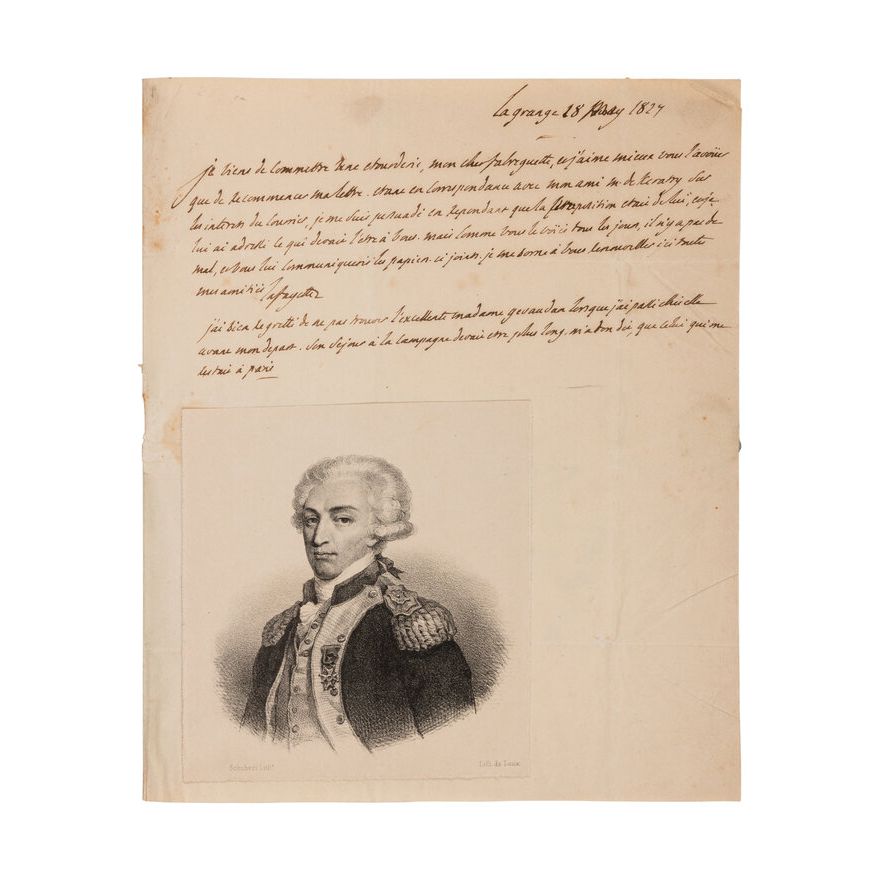 Lagrange 28 May 1827
je viens de Commettre une etourderie, mon cher fabreguette, et j'aime mieux vous l'avouer
que de Recommencer ma lettre. etant en Correspondance avec mon ami m. de Keratry sur
les interets du Courier, je me suis persuadé en Repondant que la proposition etait de lui, et je
lui ai adressé ce qui devait l'etre à vous. mais comme vous le voiés tous les jours, il n'y a pas de
mal, et vous lui Communiquerés les papiers ci joints. je me borne à vous renouveller ici toutes
mes amitiés
lafayette
j'ai bien Regretté de ne pas trouver l'excellente madame gevaudan lorsque j'ai passé chés elle
avant mon depart. Son Sejour à la Campagne devait etre plus long, m'a t'on dit, que celui qui me
restait à paris
Schubert Lith.
Lith. de